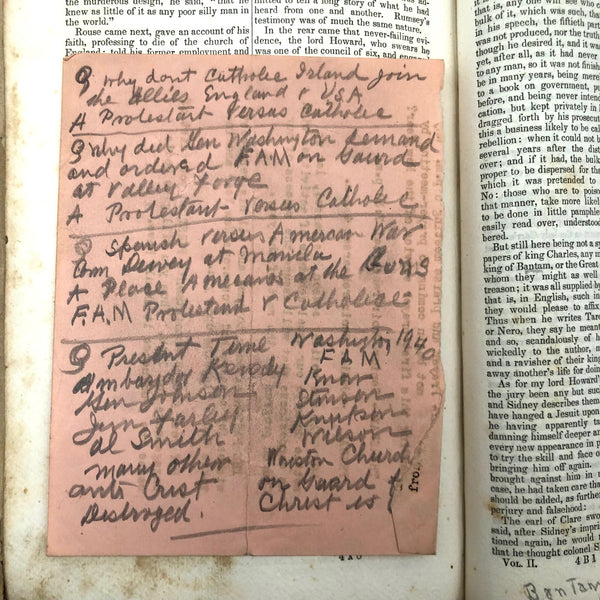 the murderous design, he said, "that he
knew as little of it as any poor silly man in
the world."
Rouse came next, gave an account of his
faith, professing to die of the church of
England: told his former employment and
mitted to tell a long story of what he had
heard from one and another. Rumsey's
testimony was of much the same nature.
In the rear came that never-failing evi-
dence, the lord Howard, who swears he
was one of the council of six, and
Q why dont Catholec Island join
the allies England & USA
A Protestant versus Catholec
Q Why did Gen Washington demand
and ordered F.A.M on Gaurd
at Valley Forge
A Protestant versus Catholec
Q Spanish versus American War
Dewey at Manila
A Place Amecains at the Guns
F.A.M Protestand & Catholese
Q Present Time Washington 1940
Ambaydor Kenedy F A M
Gen Johnson Knox
Jim Farley Stimson
Al Smith Knutson
many others Wilson
anti Crist Winston Church
Destroyed. on Guard
Christ is
fro
any one will see who
bulk of it, which was such, that
in his speech, the fiftieth part
was not produced, nor the truth
though he denied it, and
yet, after all, as it had never
to any man, so it was not finish
be in many years, being mere
to a book on government, pu
before, and being never intend
cation, but kept privately in
dragged forth by his prosecut
this a business likely to be call
rebellion: when it could not b
several years after the dist
over; and if it had, the bulk
proper to be dispersed for the
which it was pretended to
No: those who are to poison
that manner, take more likel
to be done in little pamphle
easily read over, understood
bered.
But still here being not a sy
papers of king Charles, any m
king of Bantam, or the Great
whom they might as well
treason; it was all supplied by
that is, in English, such in
they would please to affix
Thus when he writes Tarq
or Nero, they say he meant
and so, scandalously of h
wickedly to the author, a
and a ravisher of their king
away another's life for doing
As for my lord Howard'
the jury been any but such
and Sidney describes them
have hanged a Jesuit upon
he having apparently ta
damning himself deeper a
every new appearance in p
to try the skill and face of
bringing him off again.
brought against him in
case, he had taken care that
should be added, as further
perjury and falsehood:
The earl of Clare swo
said, after Sidney's impri
tioned again, he would n
that he thought colonel S
VOL. II. 4 B 1
Bantam